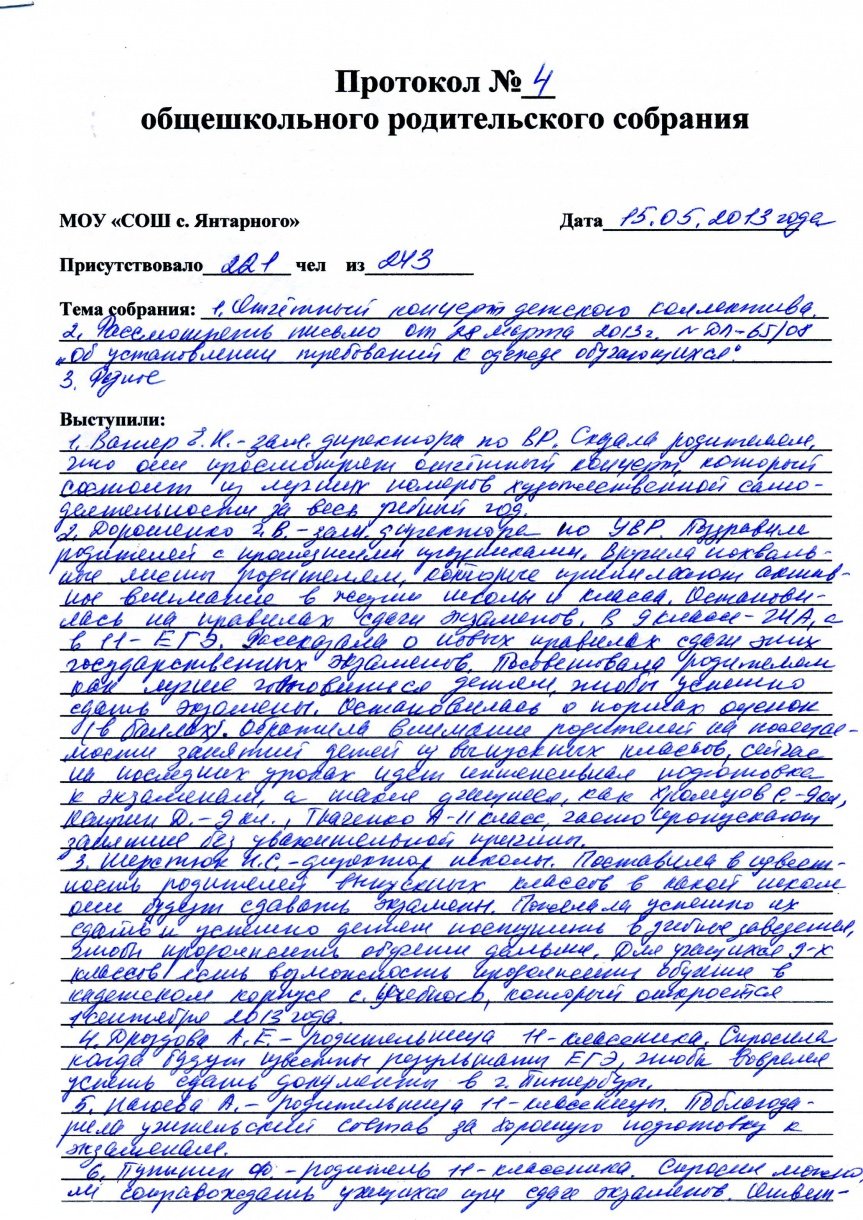 Протокол № 4
общешкольного родительского собрания
МОУ «СОШ с. Янтарного» Дата 15.05.2013 года
Присутствовало 221 чел из 243
Тема собрания: 1. Отчётный концерт детского коллектива.
2. Рассмотреть письмо от 28 марта 2013г. № ДЛ-65/08
„Об установлении требований к одежде обучающихся".
3. Разное
Выступили:
1. Вагнер Е.Н. - зам. директора по ВР. Сказала родителям,
что они просмотрят отчётный концерт, который
состоит из лучших номеров художественной само-
деятельности за весь учебный год.
2. Дорошенко В. - зам. директора по УВР. Поздравила
родителей с прошедшими праздниками. Вручила похваль-
ные листы родителям, которые принимают актив-
ное внимание в жизни школы и класса. Останови-
лась на правилах сдачи экзаменов. В 9 классе - ГИА, а
в 11 - ЕГЭ. Рассказала о новых правилах сдачи этих
государственных экзаменов. Посоветовала родителям
как лучше готовиться детям, чтобы успешно
сдать экзамены. Остановилась о нормах оценок
(в баллах). Обратила внимание родителей на посещае-
мости занятий детей из выпускных классов, сейчас
на последних уроках идет интенсивная подготовка
к экзаменам, а такие учащиеся, как Хромцов С. - 9 кл,
Д. - 9 кл., Ткаченко А - 11 класс, часто пропускают
занятие без уважительной причины.
3. Шерстюк Н.С. - директор школы. Поставила в извест-
ность родителей выпускных классов в какой школе
они будут сдавать экзамены. Пожелала успешно их
сдать и успешно детям поступить в учебные заведения,
чтобы продолжить обучение дальше. Для учащихся 9-х
классов есть возможность продолжения обучение в
кадетском корпусе с. Учебного, который откроется
1 сентября 2013 года.
4. Дроздова А.Е. - родительница 11-классника. Спросила
когда будут известны результаты ЕГЭ, чтобы вовремя
успеть сдать документы в г. Питербург.
5. Нагоева А. - родительница 11-классницы. Поблагода-
рила учительский состав за хорошую подготовку к
экзаменам.
6. Пупынин Ф. - родитель 11-классника. Спросил можно
ли сопровождать учащихся при сдаче экзаменов. Ответ-